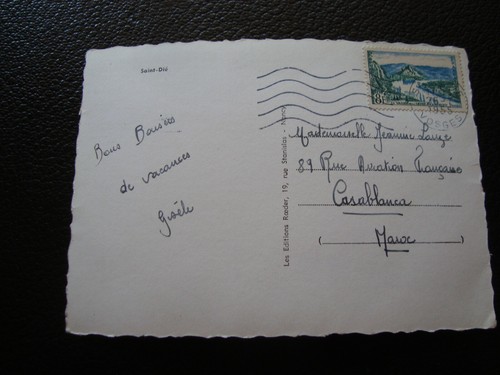 Saint-Dié
Bons Baisers
de vacances
Gisèle
Les Editions Rœder, 19, rue Stanislas - Nancy
8F
1955
VOSGES
Mademoiselle Jeanne
89 Rue Aviation Française
Casablanca
(Maroc)